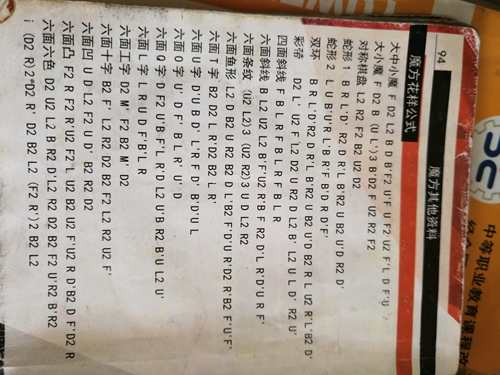 94
魔方其他资料
魔方花样公式
大中小魔 F D2 L2 B D B'F2 U'F U F2 U2 F'L D F'U
大小魔 F D2 B (U L')3 B'D2 F U R2 F2
对称棋盘 L2 R2 F2 B2 U2 D2
蛇形1 B R L'D' R2 D R'L B'R2 U B2 U'D R2 D'
蛇形2 L U B'U'R L'B R'F B'D R D'F'
双环 B R L'D'R2 D R'L B'R2 U B2 U'D B2 R L U2 R'L'B2 D'
彩带 D2 L' U2 F L2 D2 U R2 D L2 B' L2 U L D' R2 U'
四面斜线 F B L R F B L R F B L R
六面斜线 B L2 U2 L2 B'F'U2 R B F R2 D'L R'D'U R F'
六面条纹 (U2 L2)3 (U2 R2)3 U D L2 R2
六面鱼形 L2 D B2 U R2 B2 D L'B2 F'D'U R'D2 R'B2 F'U'F'
六面T字 B2 D2 L R'D2 B2 L R'
六面U字 D'U B D' L'R F D' B'D'U L
六面O字 U' D F' B L R' U' D
六面Q字 D F2 U'B F'L R'D L2 U'B R2 B'U L2 U'
六面L字 L R U D F'B'L R
六面工字 D2 M' F2 B2 M' D2
六面十字 B2 F' L2 R2 D2 B2 F2 L2 R2 U2 F'
六面凹 U D L2 F2 U D' B2 R2 D2
六面凸 F2 R F2 R'U2 F2'L U2 B2 U2 F'U2 R D'B2 D F'D2 R
六面六色 D2 U2 L2 B R2 D'L2 R2 D2 B2 F2 U'R2 B'R2
(D2 R')2*D2 R' D2 B2 L2 (F2 R')2 B2 L2
中等职业教育课程改